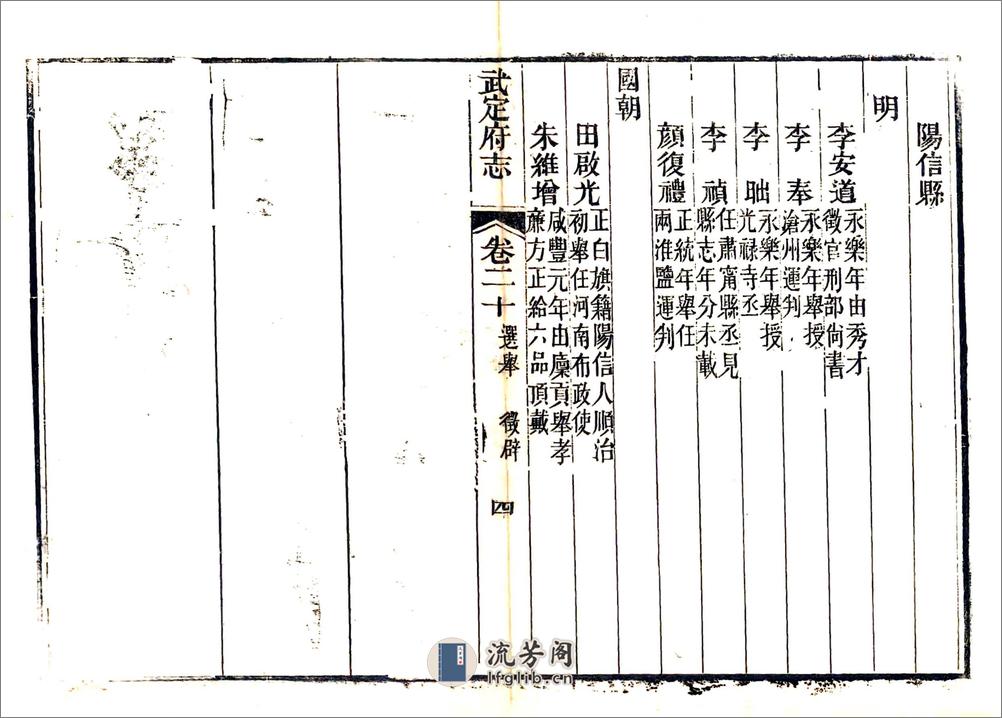 陽信縣
明
李安道 永樂年由秀才徵官刑部尙書
李奉 永樂年舉授滄州運判
李昢 永樂年舉授光禄寺丞
李禎 任肅甯縣丞見縣志年分未載
顏復禮 正統年舉任兩淮鹽運判
國朝
田啟光 正白旗籍陽信人順治初舉任河南布政使
朱維增 咸豐元年由廩貢舉孝廉方正給六品頂戴
武定府志 卷二十 選舉 徵辟 四
流芳阁
lfglib.cn